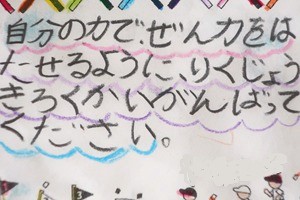 自分の力でぜん力をは
たせるように、りくじょう
きろくかいがんばって
ください。